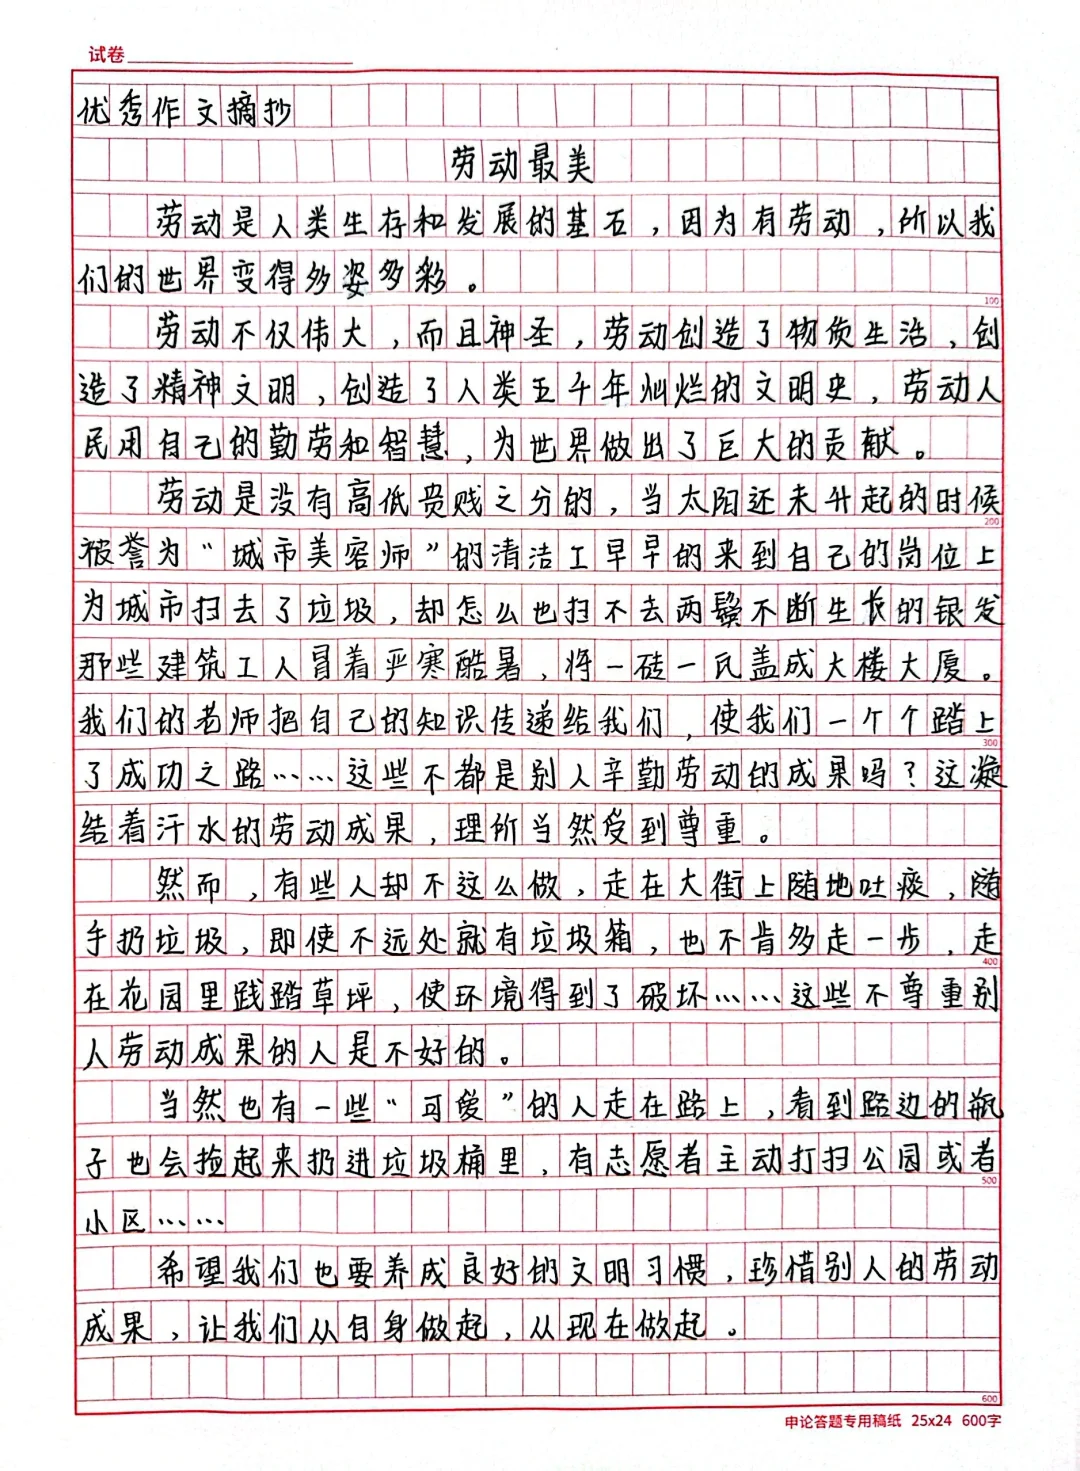 试卷
优秀作文摘抄
劳动最美
劳动是人类生存和发展的基石，因为有劳动，所以我
们的世界变得多姿多彩。
100
劳动不仅伟大，而且神圣，劳动创造了物质生活，创
造了精神文明，创造了人类五千年灿烂的文明史，劳动人
民用自己的勤劳和智慧，为世界做出了巨大的贡献。
劳动是没有高低贵贱之分的，当太阳还未升起的时候
200
被誉为“城市美容师”的清洁工早早的来到自己的岗位上
为城市扫去了垃圾，却怎么也扫不去两鬓不断生长的银发
那些建筑工人冒着严寒酷暑，将一砖一瓦盖成大楼大厦。
我们的老师把自己的知识传递给我们，使我们一个个踏上
300
了成功之路……这些不都是别人辛勤劳动的成果吗？这凝
结着汗水的劳动成果，理所当然受到尊重。
然而，有些人却不这么做，走在大街上随地吐痰，随
手扔垃圾，即使不远处就有垃圾箱，也不肯多走一步，走
400
在花园里践踏草坪，使环境得到了破坏……这些不尊重别
人劳动成果的人是不好的。
当然也有一些“可爱”的人走在路上，看到路边的瓶
子也会捡起来扔进垃圾桶里，有志愿者主动打扫公园或者
500
小区……
希望我们也要养成良好的文明习惯，珍惜别人的劳动
成果，让我们从自身做起，从现在做起。
600
申论答题专用稿纸 25x24 600字